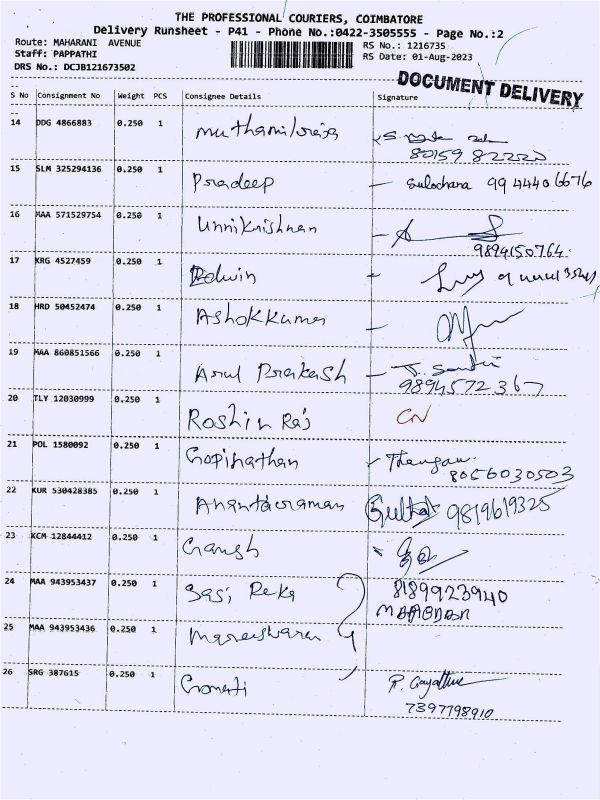 THE PROFESSIONAL COURIERS, COIMBATORE
Delivery Runsheet - P41 - Phone No.:0422-3505555 - Page No.:2
Route: MAHARANI AVENUE
RS No.: 1216735
Staff: PAPPATHI
RS Date: 01-Aug-2023
DRS No.: DCJB121673502
DOCUMENT DELIVERY
S No Consignment No Weight PCS Consignee Details Signature
14 DDG 4866883 0.250 1 Muthamilraja
80159 82220
15 SLM 325294136 0.250 1 Pradeep - Sulochana 99 44406676
16 MAA 571529754 0.250 1 Unnikrishnan
9894150764.
17 KRG 4527459 0.250 1 Edwin
18 HRD 50452474 0.250 1 Ashokkumar
19 MAA 860851566 0.250 1 Arul Prakash
9894572367
20 TLY 12030999 0.250 1 Roshin Raj CN
21 POL 1580092 0.250 1 Gopinathan
8056030503
22 KUR 530428385 0.250 1 Anantaraman 9819619325
23 KCM 12844412 0.250 1 Ganesh
24 MAA 943953437 0.250 1 Sasi Reka 8189923940
25 MAA 943953436 0.250 1 Maheeshwaran
26 SRG 387615 0.250 1 Gomati R. Gayathri
7397798910